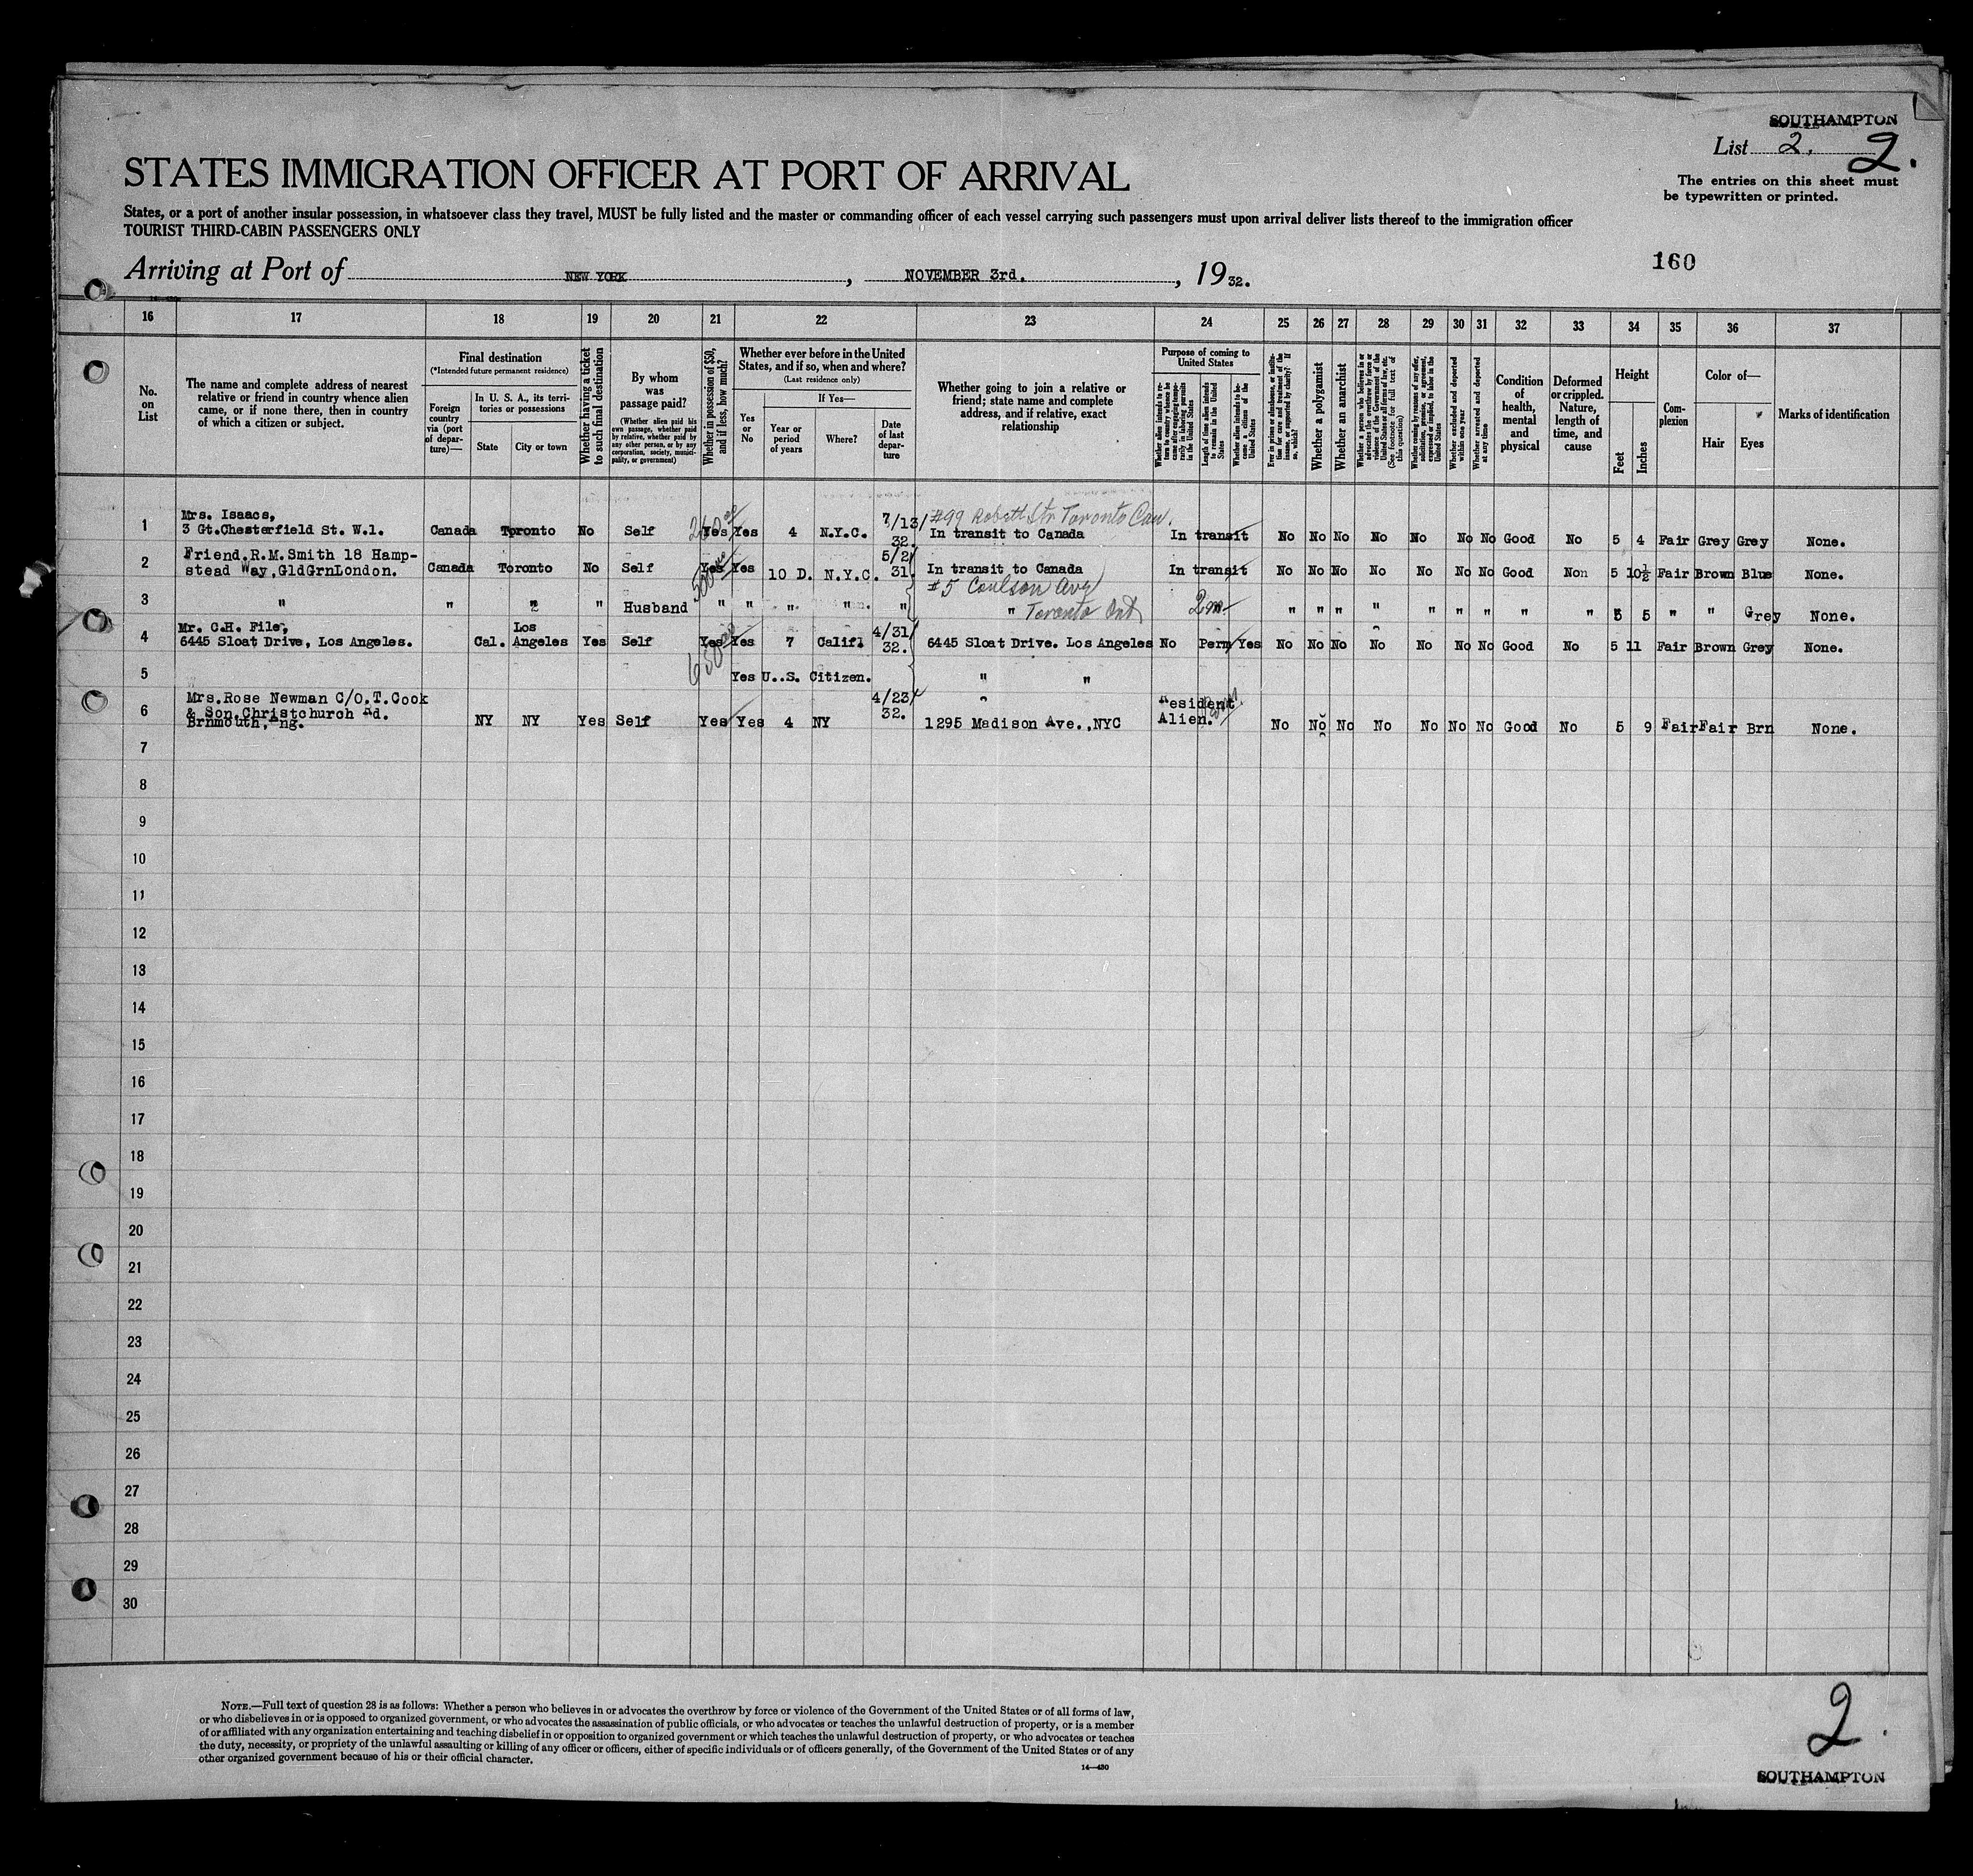 SOUTHAMPTON
List 2. 2.
STATES IMMIGRATION OFFICER AT PORT OF ARRIVAL
The entries on this sheet must
be typewritten or printed.
States, or a port of another insular possession, in whatsoever class they travel, MUST be fully listed and the master or commanding officer of each vessel carrying such passengers must upon arrival deliver lists thereof to the immigration officer
TOURIST THIRD-CABIN PASSENGERS ONLY
160
Arriving at Port of NEW YORK, NOVEMBER 3rd., 1932.
16 17 18 19 20 21 22 23 24 25 26 27 28 29 30 31 32 33 34 35 36 37
No. on List
The name and complete address of nearest
relative or friend in country whence alien
came, or if none there, then in country
of which a citizen or subject.
Final destination
(*Intended future permanent residence)
Foreign country via (port of departure)—
In U. S. A., its territories or possessions
State
City or town
Whether having a ticket to such final destination
By whom was passage paid?
(Whether alien paid his own passage, whether paid by relative, whether paid by any other person, or by any corporation, society, municipality, or government)
Whether in possession of $50, and if less, how much?
Whether ever before in the United States, and if so, when and where?
(Last residence only)
Yes or No
If Yes—
Year or period of years
Where?
Date of last departure
Whether going to join a relative or
friend; state name and complete
address, and if relative, exact
relationship
Purpose of coming to United States
Whether alien intends to return to country whence he came after engaging temporarily in laboring pursuits in the United States
Length of time alien intends to remain in the United States
Whether alien intends to become a citizen of the United States
Ever in prison or almshouse, or institution for care and treatment of the insane, or supported by charity? If so, which?
Whether a polygamist
Whether an anarchist
Whether a person who believes in or advocates the overthrow by force or violence of the Government of the United States or all forms of law, etc. (See footnote for full text of this question)
Whether coming by reason of any offer, solicitation, promise, or agreement, expressed or implied, to labor in the United States
Whether excluded and deported within one year
Whether arrested and deported at any time
Condition of health, mental and physical
Deformed or crippled. Nature, length of time, and cause
Height
Feet
Inches
Complexion
Color of—
Hair
Eyes
Marks of identification
Mrs. Isaacs, 7/13/ #99 Robert Str Toronto Can.
1 3 Gt.Chesterfield St. W.1. Canada Toronto No Self Yes Yes 4 N.Y.C. 32. In transit to Canada In transit No No No No No No No Good No 5 4 Fair Grey Grey None.
Friend.R.M.Smith 18 Hamp- 5/2/
2 stead Way,GldGrnLondon. Canada Toronto No Self Yes Yes 10 D. N.Y.C. 31. In transit to Canada In transit No No No No No No No Good Non 5 10½ Fair Brown Blue None.
#5 Coulson Ave
3 " " " " Husband " " " " " " Toronto Ont " " " " " " " " " 5 5 " " Grey None.
Mr. C.H. File, Los 4/31/
4 6445 Sloat Drive, Los Angeles. Cal. Angeles Yes Self Yes Yes 7 Calif. 32. 6445 Sloat Drive. Los Angeles No Perm Yes No No No No No No No Good No 5 11 Fair Brown Grey None.
5 Yes U..S. Citizen. " "
Mrs.Rose Newman C/O.T.Cook 4/23/ Resident
6 & Son.Christchurch Rd. 32. Alien.
Brnmouth, ng. NY NY Yes Self Yes Yes 4 NY 1295 Madison Ave.,NYC No No No No No No No Good No 5 9 Fair Fair Brn None.
7
8
9
10
11
12
13
14
15
16
17
18
19
20
21
22
23
24
25
26
27
28
29
30
NOTE.—Full text of question 28 is as follows: Whether a person who believes in or advocates the overthrow by force or violence of the Government of the United States or of all forms of law,
or who disbelieves in or is opposed to organized government, or who advocates the assassination of public officials, or who advocates or teaches the unlawful destruction of property, or is a member
of or affiliated with any organization entertaining and teaching disbelief in or opposition to organized government or which teaches the unlawful destruction of property, or who advocates or teaches
the duty, necessity, or propriety of the unlawful assaulting or killing of any officer or officers, either of specific individuals or of officers generally, of the Government of the United States or of any
other organized government because of his or their official character.
14—430
2.
SOUTHAMPTON